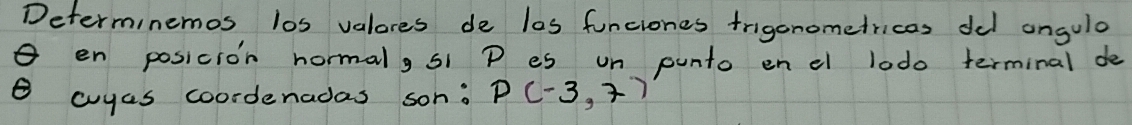 Determinemos los valores de las funciones trigonometricas del angulo
θ en posición normal, si P es un punto en el lado terminal de
θ cuyas coordenadas son: P(-3, 7)